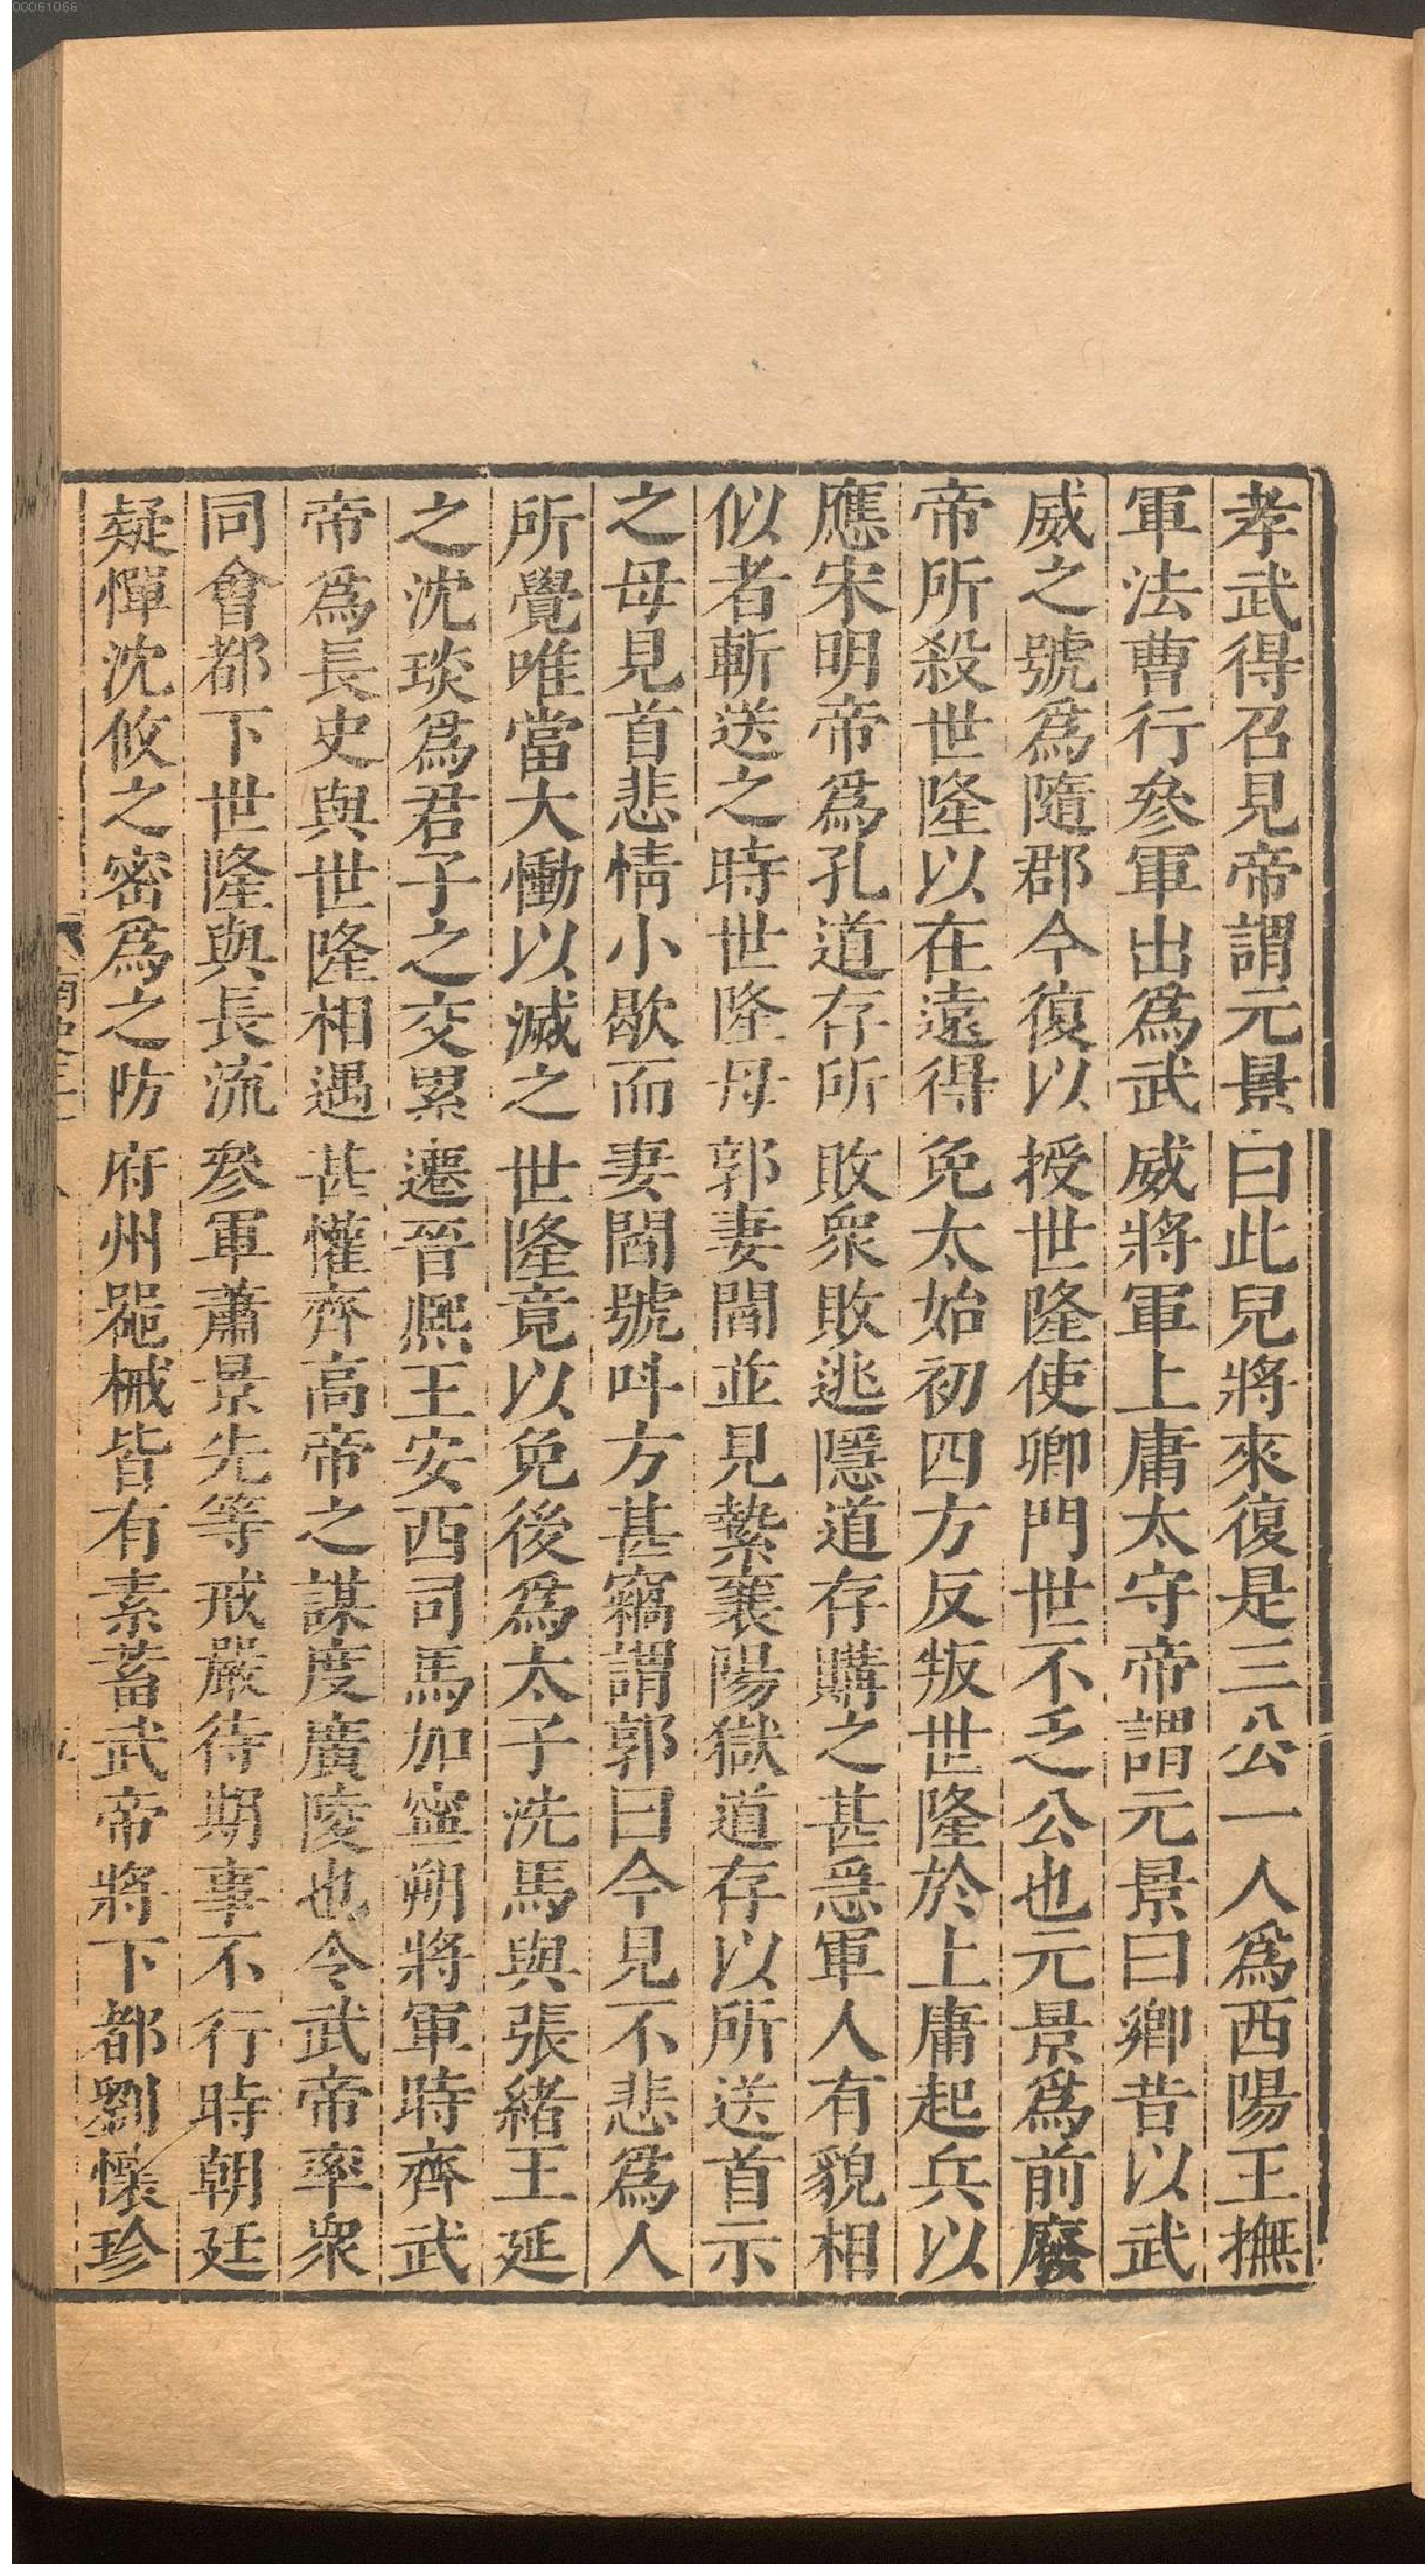 孝武得召見帝謂元景曰此兒將來復是三公一人爲西陽王撫
軍法曹行參軍出爲武威將軍上庸太守帝謂元景曰卿昔以武
威之號爲隨郡今復以授世隆使卿門世不乏公也元景爲前廢
帝所殺世隆以在遠得免太始初四方反叛世隆於上庸起兵以
應宋明帝爲孔道存所敗衆敗逃隱道存購之甚急軍人有貌相
似者斬送之時世隆母郭妻閻並見縶襄陽獄道存以所送首示
之母見首悲情小歇而妻閻號叫方甚竊謂郭曰今見不悲爲人
所覺唯當大慟以滅之世隆竟以免後爲太子洗馬與張緒王延
之沈琰爲君子之交累遷晉熙王安西司馬加寧朔將軍時齊武
帝爲長史與世隆相遇甚懽齊高帝之謀度廣陵也令武帝率衆
同會都下世隆與長流參軍蕭景先等戒嚴待期事不行時朝廷
疑憚沈攸之密爲之防府州器械皆有素蓄武帝將下都劉懷珍
00061066